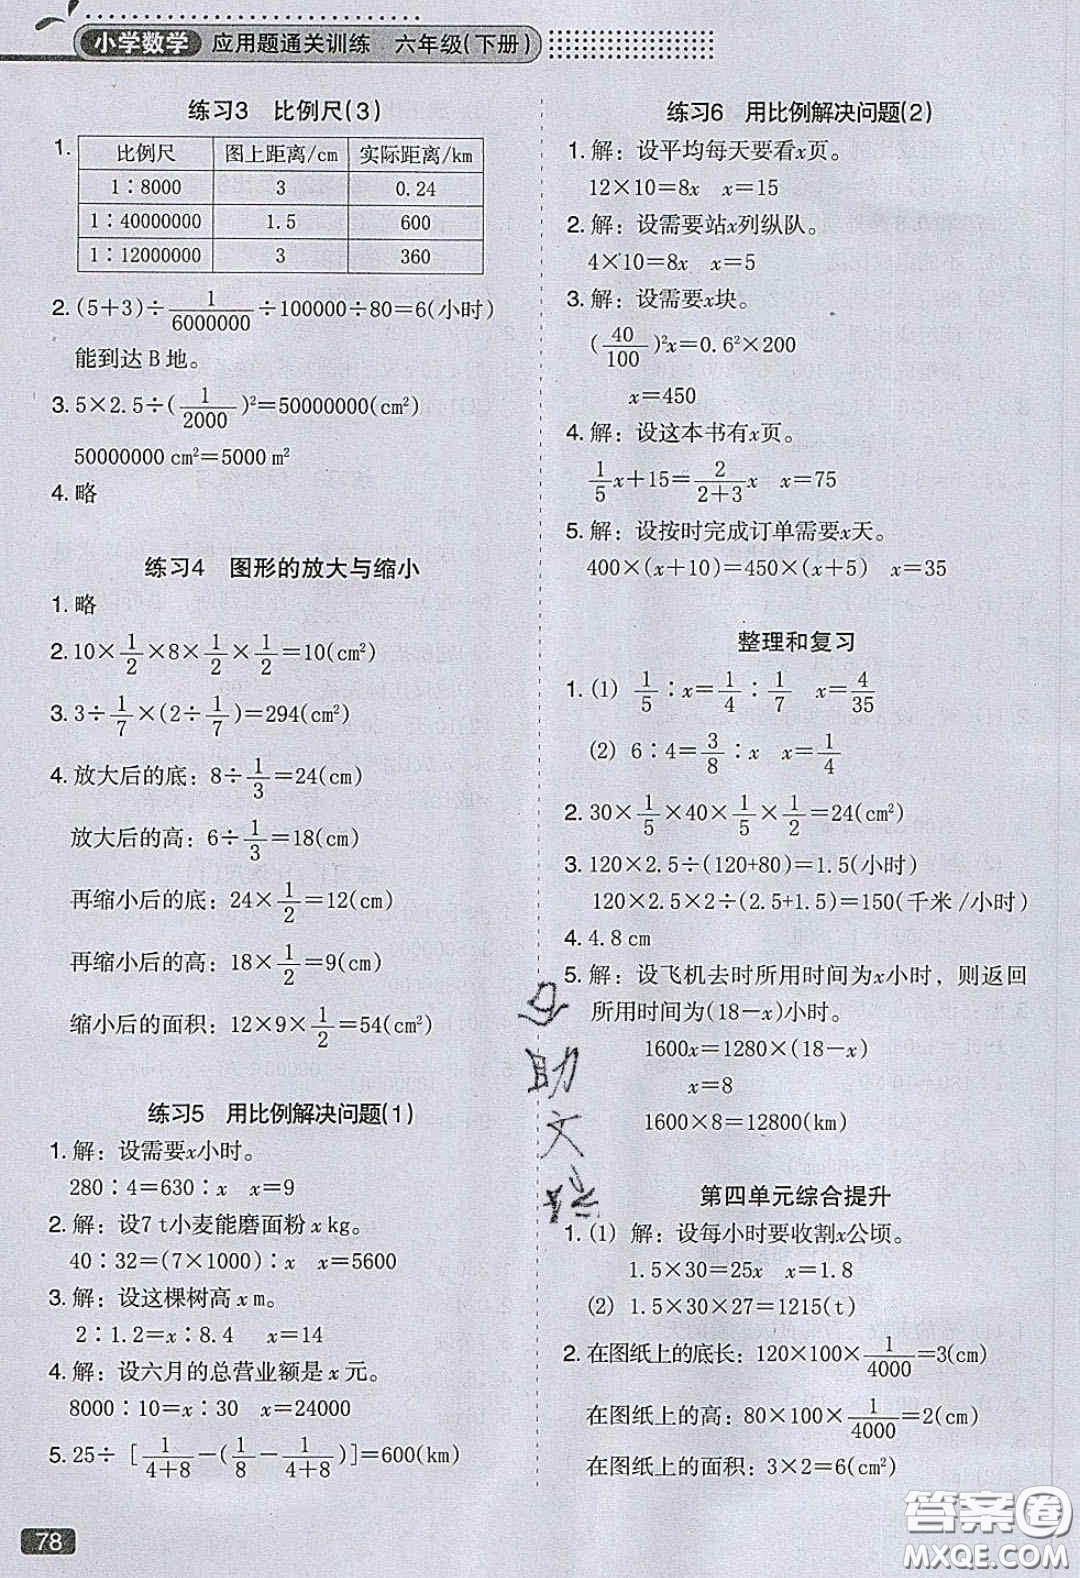 小学数学 应用题通关训练 六年级(下册)
练习3 比例尺(3)
1.
比例尺 图上距离/cm 实际距离/km
1∶8000 3 0.24
1∶40000000 1.5 600
1∶12000000 3 360
2. (5+3)÷1/6000000÷100000÷80=6(小时)
能到达 B 地。
3. 5×2.5÷(1/2000)²=50000000(cm²)
50000000 cm²=5000 m²
4. 略
练习4 图形的放大与缩小
1. 略
2. 10×1/2×8×1/2×1/2=10(cm²)
3. 3÷1/7×(2÷1/7)=294(cm²)
4. 放大后的底：8÷1/3=24(cm)
放大后的高：6÷1/3=18(cm)
再缩小后的底：24×1/2=12(cm)
再缩小后的高：18×1/2=9(cm)
缩小后的面积：12×9×1/2=54(cm²)
练习5 用比例解决问题(1)
1. 解：设需要x小时。
280∶4=630∶x x=9
2. 解：设7 t小麦能磨面粉 x kg。
40∶32=(7×1000)∶x x=5600
3. 解：设这棵树高 x m。
2∶1.2=x∶8.4 x=14
4. 解：设六月的总营业额是 x 元。
8000∶10=x∶30 x=24000
5. 25÷[1/4+8-(1/8-1/4+8)]=600(km)
78
练习6 用比例解决问题(2)
1. 解：设平均每天要看x页。
12×10=8x x=15
2. 解：设需要站x列纵队。
4×10=8x x=5
3. 解：设需要x块。
(40/100)²x=0.6²×200
x=450
4. 解：设这本书有x页。
1/5x+15=2/2+3x x=75
5. 解：设按时完成订单需要x天。
400×(x+10)=450×(x+5) x=35
整理和复习
1. (1) 1/5∶x=1/4∶1/7 x=4/35
(2) 6∶4=3/8∶x x=1/4
2. 30×1/5×40×1/5×1/2=24(cm²)
3. 120×2.5÷(120+80)=1.5(小时)
120×2.5×2÷(2.5+1.5)=150(千米/小时)
4. 4.8 cm
5. 解：设飞机去时所用时间为x小时，则返回
所用时间为(18-x)小时。
1600x=1280×(18-x)
x=8
1600×8=12800(km)
第四单元综合提升
1. (1) 解：设每小时要收割x公顷。
1.5×30=25x x=1.8
(2) 1.5×30×27=1215(t)
2. 在图纸上的底长：120×100×1/4000=3(cm)
在图纸上的高：80×100×1/4000=2(cm)
在图纸上的面积：3×2=6(cm²)
答案圈
MXQE.COM